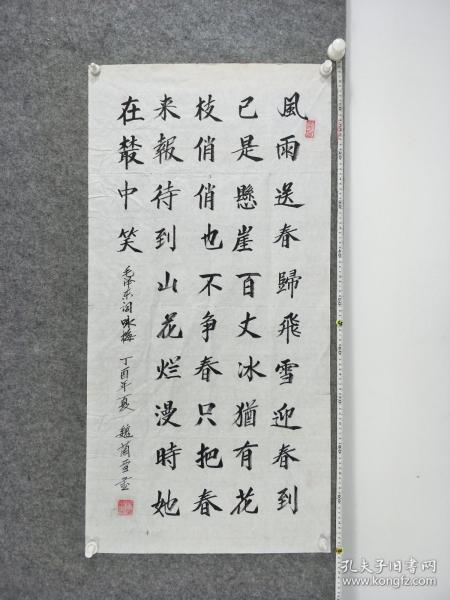 風雨送春歸飛雪迎春到
已是懸崖百丈冰猶有花
枝俏俏也不争春只把春
来報待到山花烂漫時她
在叢中笑
毛泽东词咏梅 丁酉年夏
孔夫子旧书网
www.kongfz.com